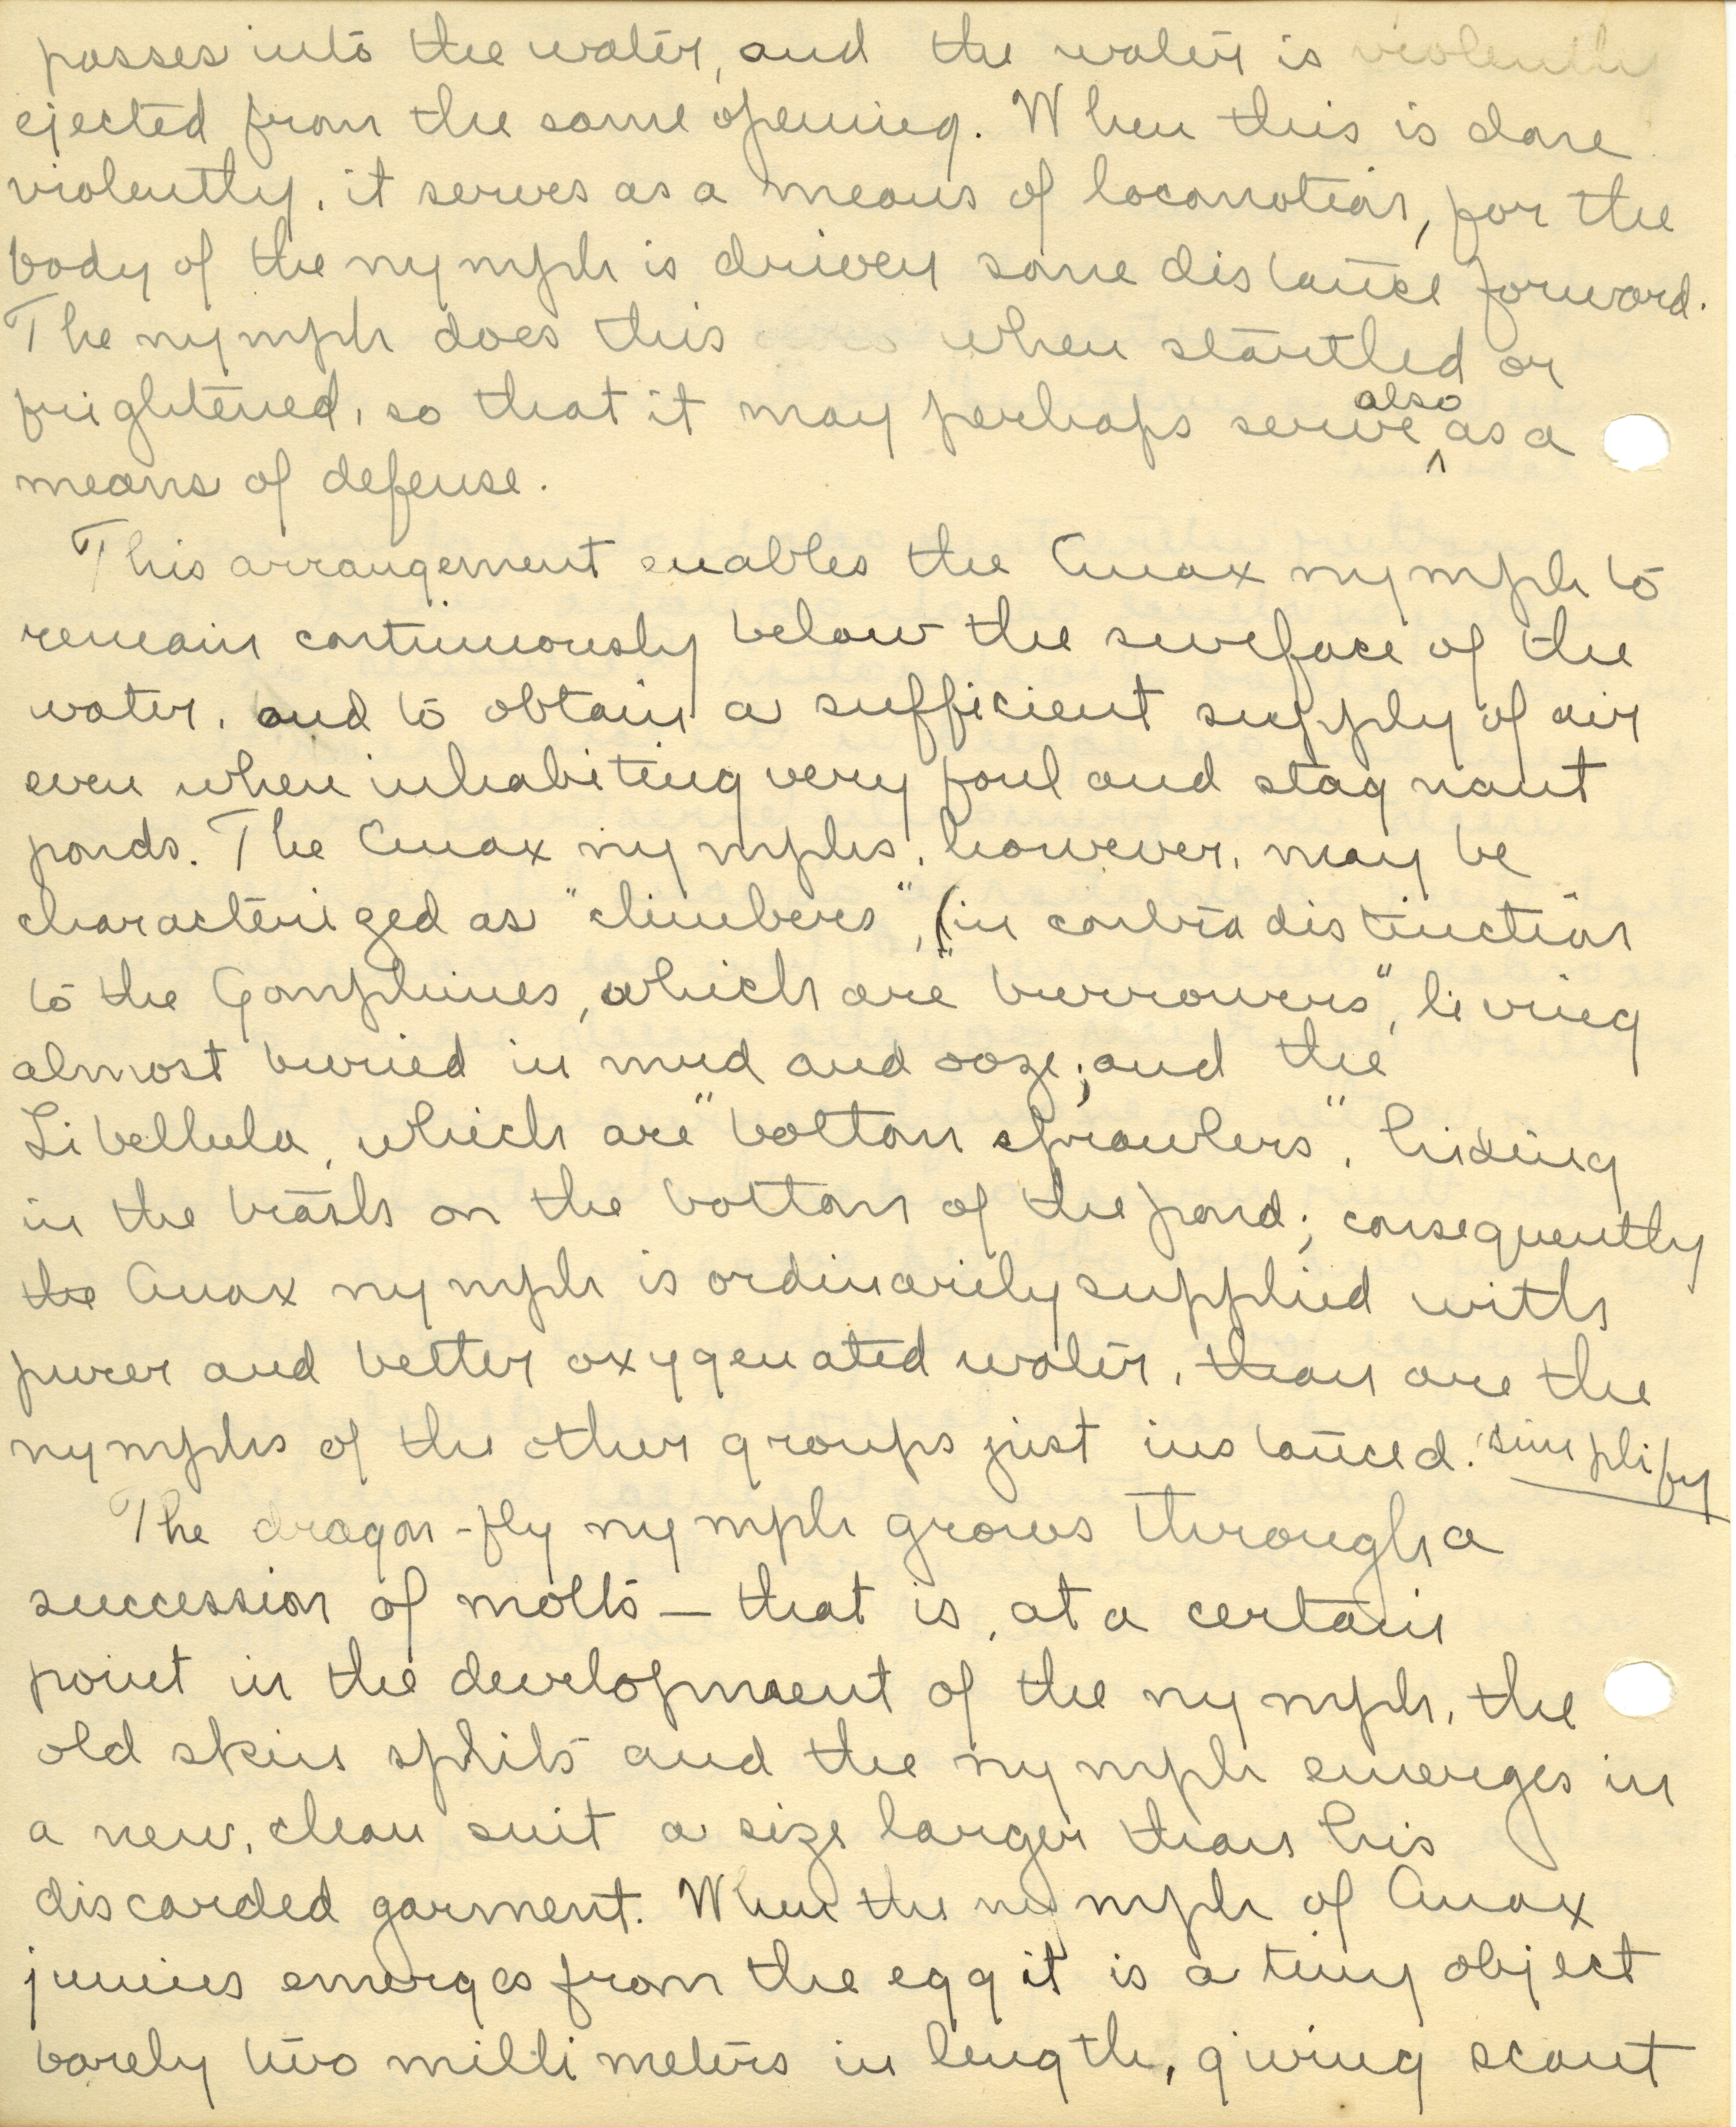 passes into the water, and the water is violently
ejected from the same opening. When this is done
violently, it serves as a means of locomotion, for the
body of the nymph is driven some distance forward.
The nymph does this when startled or
frightened, so that it may perhaps serve also as a
means of defense.
This arrangement enables the Anax nymph to
remain continuously below the surface of the
water, and to obtain a sufficient supply of air
even when inhabiting very foul and stagnant
ponds. The Anax nymphs, however, may be
characterized as "climbers", (in contradistinction
to the Gomphines, which are "burrowers", living
almost buried in mud and ooze; and the
Libellula, which are "bottom sprawlers", hiding
in the trash on the bottom of the pond; consequently
the Anax nymph is ordinarily supplied with
purer and better oxygenated water, than are the
nymphs of the other groups just instanced. simplify
The dragon-fly nymph grows through a
succession of molts — that is, at a certain
point in the development of the nymph, the
old skin splits and the nymph emerges in
a new, clean suit a size larger than his
discarded garment. When the nymph of Anax
junius emerges from the egg it is a tiny object
barely two millimeters in length, giving scant